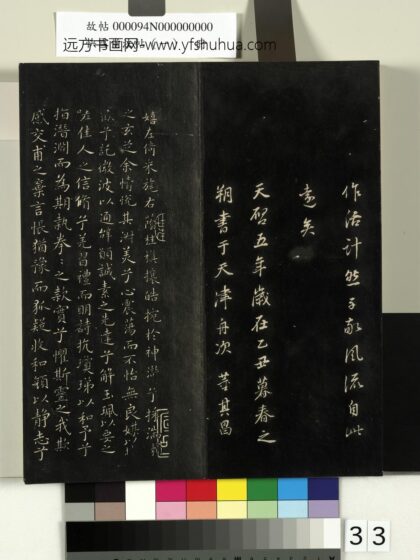 故帖 000094N000000000
远方书画网-www.yfshuhua.com
作活計然子敬風流自此
遠矣
天啟五年歲在乙丑暮春之
朔書于天津舟次 董其昌
嬉左倚采旄右蔭桂旗攘皓捥於神滸兮採湍瀨
之玄芝余情悅其淑美兮心震蕩而不怡無良媒以
兮託微波以通辭願誠素之先達兮解玉珮以要之
嗟佳人之信脩兮羌習禮而明詩抗瓊珶以和予兮
指潛淵而為期執拳〻之款實兮懼斯靈之我欺
感交甫之棄言悵猶豫而狐疑收和顏以静志兮
33